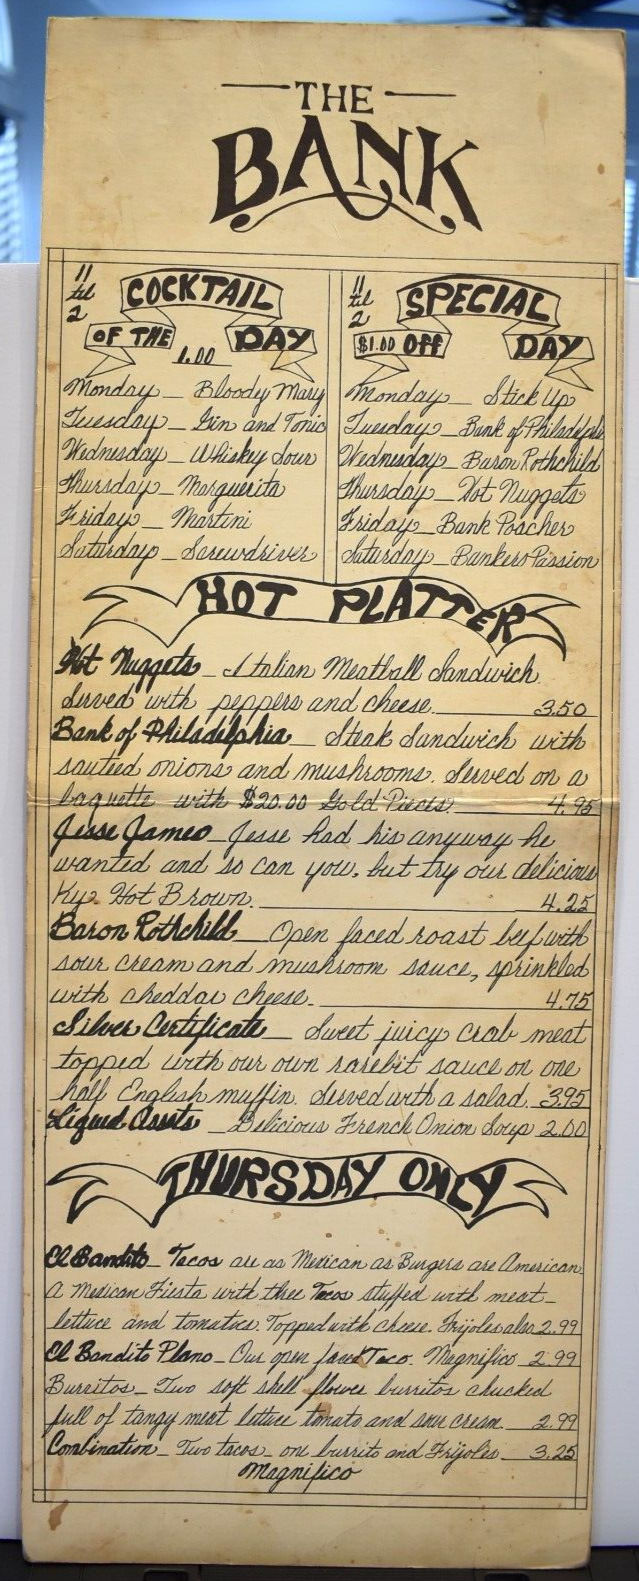 THE
BANK
11
til
2
COCKTAIL
OF THE
1.00
DAY
Monday - Bloody Mary
Tuesday - Gin and Tonic
Wednesday - Whiskey Sour
Thursday - Marguerita
Friday - Martini
Saturday - Screwdriver
11
til
2
SPECIAL
$1.00 OFF
DAY
Monday - Stick Up
Tuesday - Bank of Philadelphia
Wednesday - Baron Rothchild
Thursday - Hot Nuggets
Friday - Bank Poacher
Saturday - Bankers Passion
HOT PLATTER
Hot Nuggets - Italian Meatball Sandwich
Served with peppers and cheese. 3.50
Bank of Philadelphia - Steak Sandwich with
sauteed onions and mushrooms. Served on a
baguette with $20.00 Gold Pieces. 4.95
Jesse James - Jesse had his anyway he
wanted and so can you, but try our delicious
Ky. Hot Brown. 4.25
Baron Rothchild - Open faced roast beef with
sour cream and mushroom sauce, sprinkled
with cheddar cheese. 4.75
Silver Certificate - Sweet juicy crab meat
topped with our own rarebit sauce on one
half English muffin. Served with a salad. 3.95
Liquid Assets - Delicious French Onion Soup 2.00
THURSDAY ONLY
El Bandito - Tacos are as Mexican as Burgers are American.
A Mexican Fiesta with three Tacos stuffed with meat -
lettuce and tomatoe. Topped with cheese. Frijoles also 2.99
El Bandito Plano - Our open faced Taco. Magnifico 2.99
Burritos - Two soft shell flower burritos chucked
full of tangy meat lettuce tomato and sour cream. 2.99
Conbination - Two tacos - one burrito and Frijoles 3.25
Magnifico